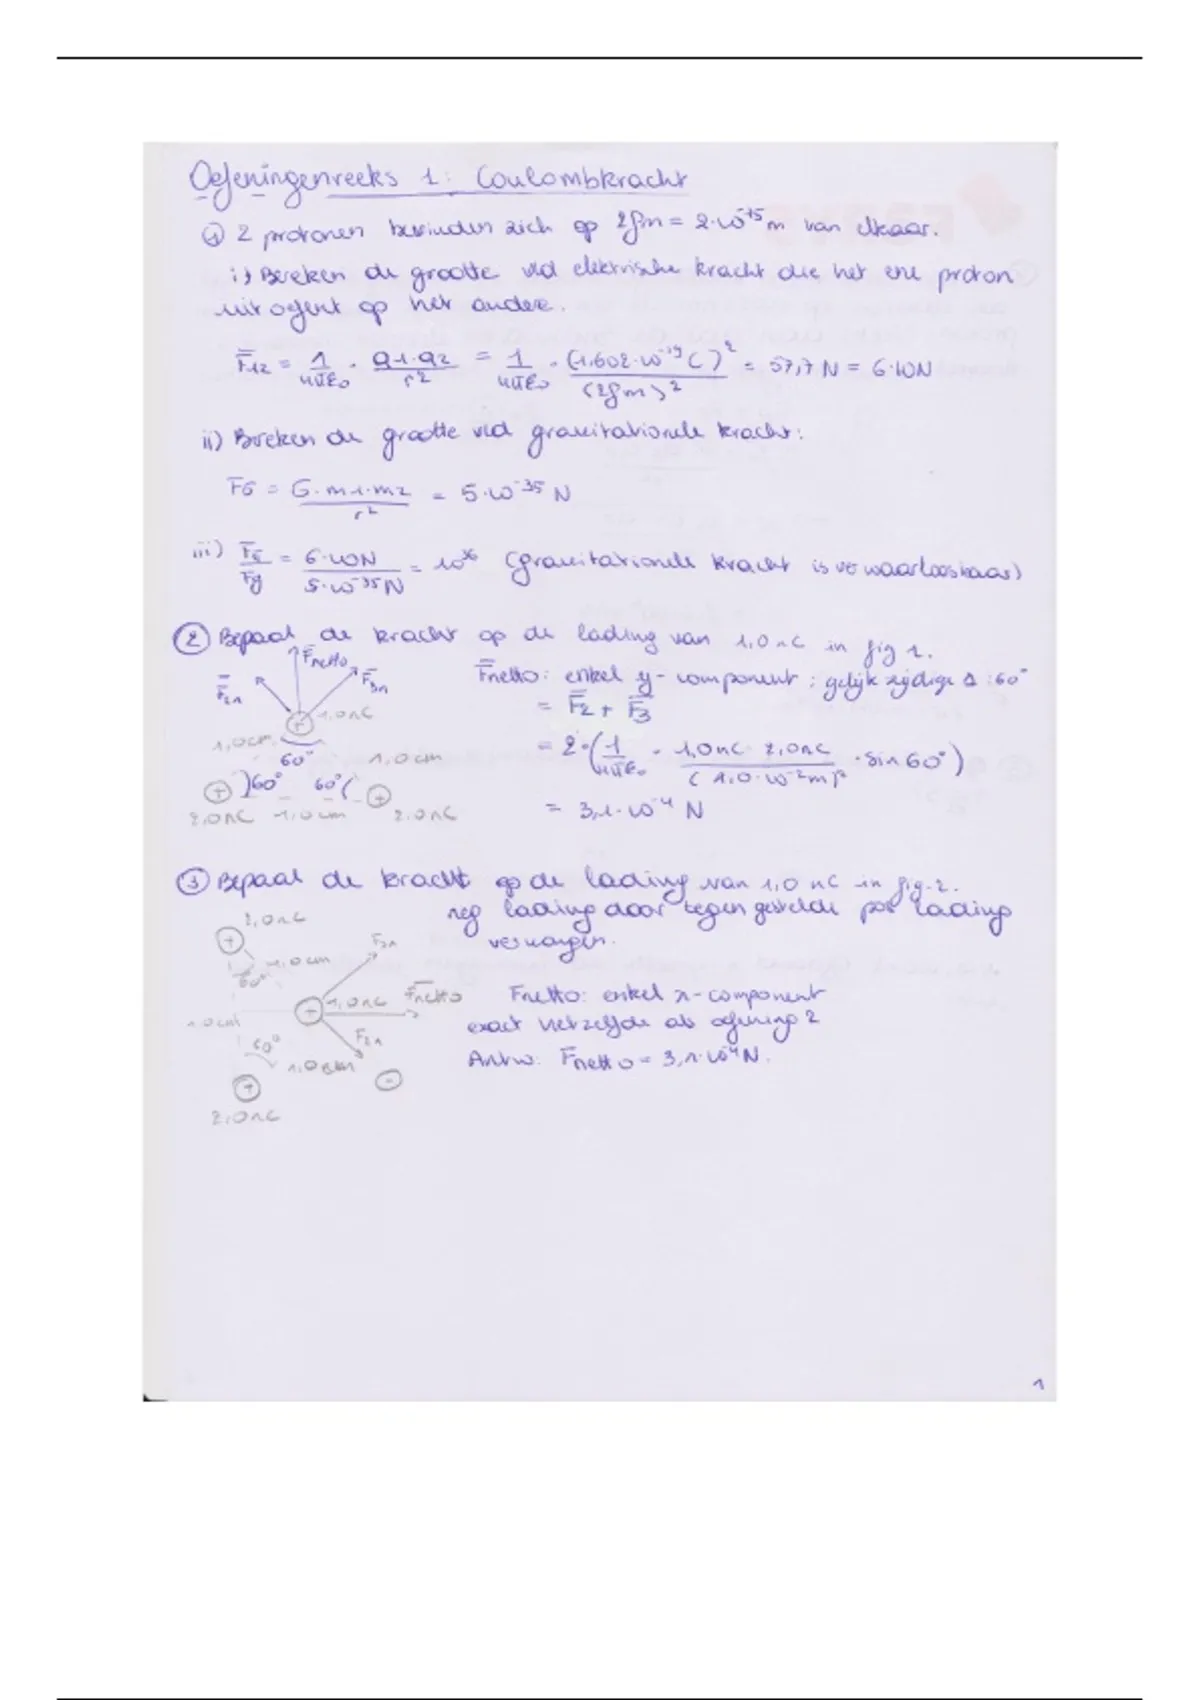 Oefeningenreeks 1: Coulombkracht
① 2 protonen bevinden zich op 2fm = 2·10^-15 m van elkaar.
i) Bereken de grootte vld elektrische kracht die het ene proton
uitoefent op het andere.
F12 = 1/4πε0 · q1·q2/r² = 1/4πε0 · (1,602·10^-19 C)²/(2fm)² = 57,7 N = 6·10N
ii) Bereken de grootte vld gravitationele kracht:
FG = G·m1·m2/r² = 5·10^-35 N
iii) FE/Fg = 6·10N/5·10^-35N = 10^36 (gravitationele kracht is verwaarloosbaar)
② Bepaal de kracht op de lading van 1,0 nC in fig 1.
Fnetto
F2n
F3n
1,0nC
1,0cm
60°
1,0cm
60° 60°
2,0nC 1,0cm 2,0nC
Fnetto: enkel y-component; gelijkzijdige Δ: 60°
= F2 + F3
= 2·(1/4πε0 · 1,0nC·2,0nC/(1,0·10^-2m)² · sin60°)
= 3,1·10^-4 N
③ Bepaal de kracht op de lading van 1,0 nC in fig. 2.
neg lading door tegengestelde pos lading
vervangen.
2,0nC
1,0cm
60°
F3n
1,0nC Fnetto
1,0cm
60°
F2n
1,0cm
2,0nC
Fnetto: enkel x-component
exact hetzelfde als oefening 2
Antw: Fnetto = 3,1·10^-4 N.
1